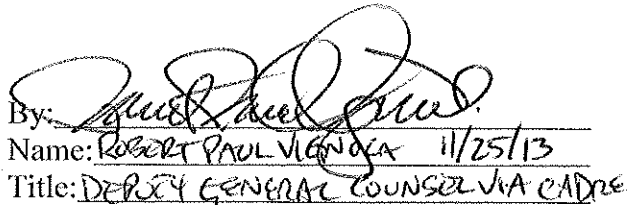 By:
Name: ROBERT PAUL VIGNOLA 11/25/13
Title: DEPUTY GENERAL COUNSEL VIA CADRE